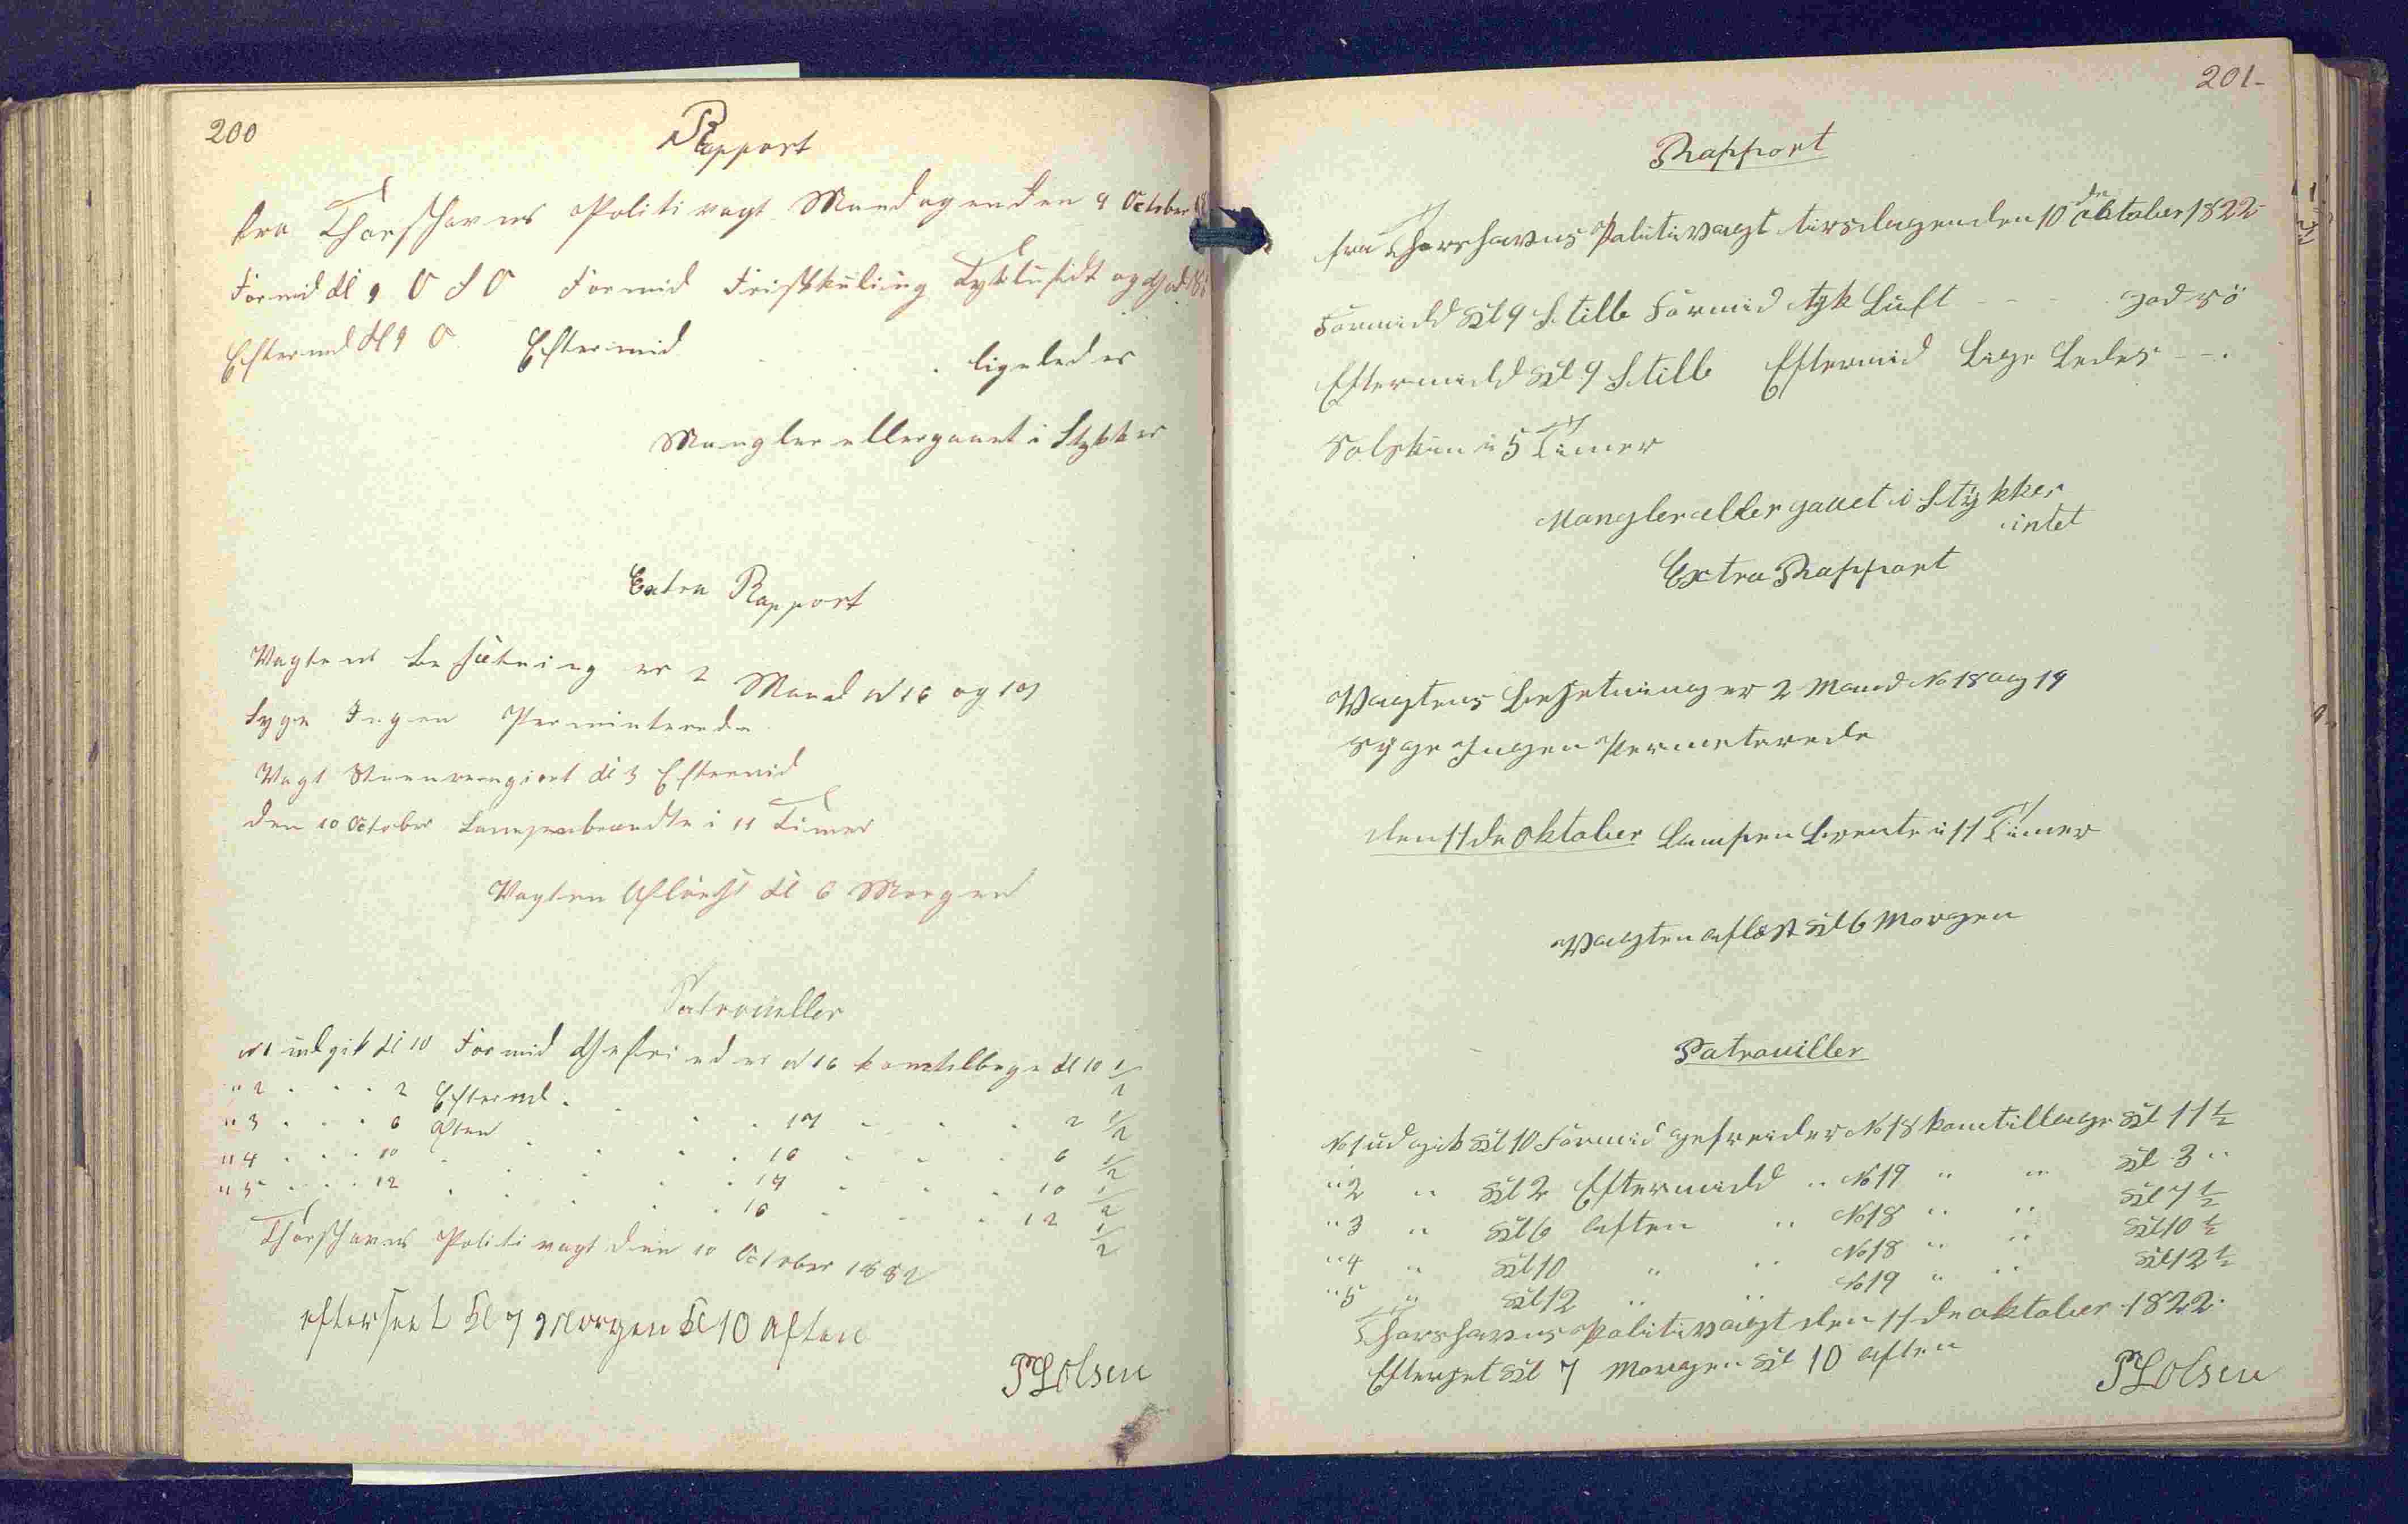 200
Rapport
fra Thorshavns Politivagt Mandagen den 9 October
Formid Kl 9 O S O Formid Friskkuling Tykluft og God Sö
Eftermd Kl 9 O Eftermid ligeledes
Mangler ellergaaet i Stykker
Extra Rapport
Vagtens Besætning er 2 Mand N 16 og 17
Syge Ingen Perminterede
Vagt Stuenrengiort Kl 3 Eftermid
den 10 October Lampenbrændte i 11 Timer
Vagten Aflöst Kl 6 Morgen
Patrouiller
N 1 udgik Kl 10 Formid Gefreider N 16 komtilbage Kl 10 1/2
" 2 . . . 2 Eftermd . . . 17 . . . 2 1/2
" 3 . . . 6 Aften . . . 16 . . . 6 1/2
" 4 . . . 10 . . . 17 . . . 10 1/2
" 5 . . . 12 . . . 16 . . . 12 1/2
Thorshavns Politivagt den 10 October 1882
efterseet Kl 7 Morgen Kl 10 Aften
PLOlsen
201-
Rapport
fra Thorshavns Politivagt tirsdagenden 10 de oktober 1822-
Formidd Kl 9 Stille Formid tyk Luft - - - god sö
Eftermidd Kl 9 Stille Eftermid Lige Ledes - - .
Solskin i 5 Timer
Mangler eller gaaet i Stykker
intet
Extra Rapport
Vagtens Besetning er 2 Mand No 18 og 19
Syge Ingen Permeterede
den 11 de oktober Lampen brente i 11 Timer
Vagten aflöst Kl 6 Morgen
Patrouiller
No 1 udgik Kl 10 Formid gefreider No 18 komtilbage Kl 11 1/2
" 2 " Kl 2 Eftermidd " No 19 " " Kl 3 "
" 3 " Kl 6 aften " No 18 " " Kl 7 1/2
" 4 " Kl 10 " " No 18 " " Kl 10 1/2
" 5 " Kl 12 " " No 19 " " Kl 12 1/2
Thorshavns Politivagt den 11 de oktober 1822.
Efterset Kl 7 Morgen Kl 10 aften
PLOlsen